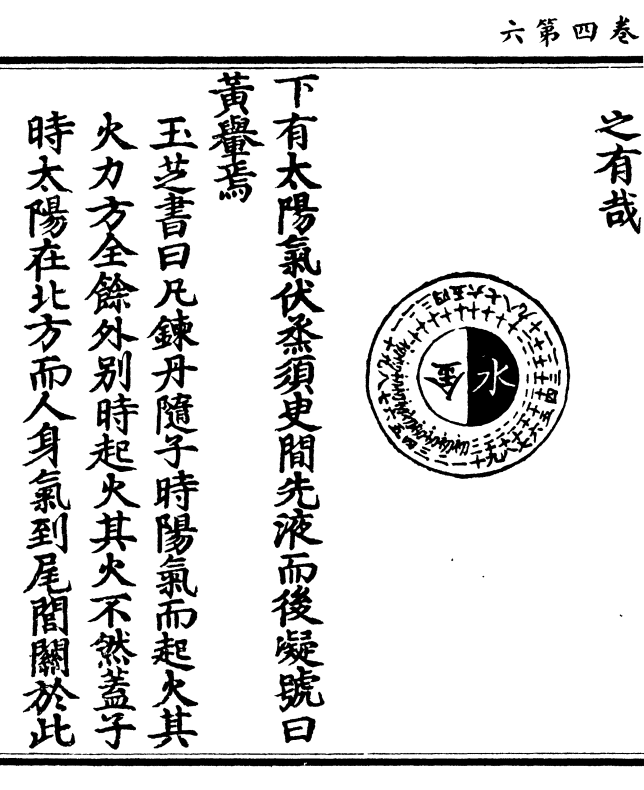 卷四第六
之有哉
水
金
下有太陽氣伏蒸須臾間先液而後凝號曰
黃轝焉
玉芝書曰凡鍊丹隨子時陽氣而起火其
火力方全餘外别時起火其火不然蓋子
時太陽在北方而人身氣到尾閭關於此